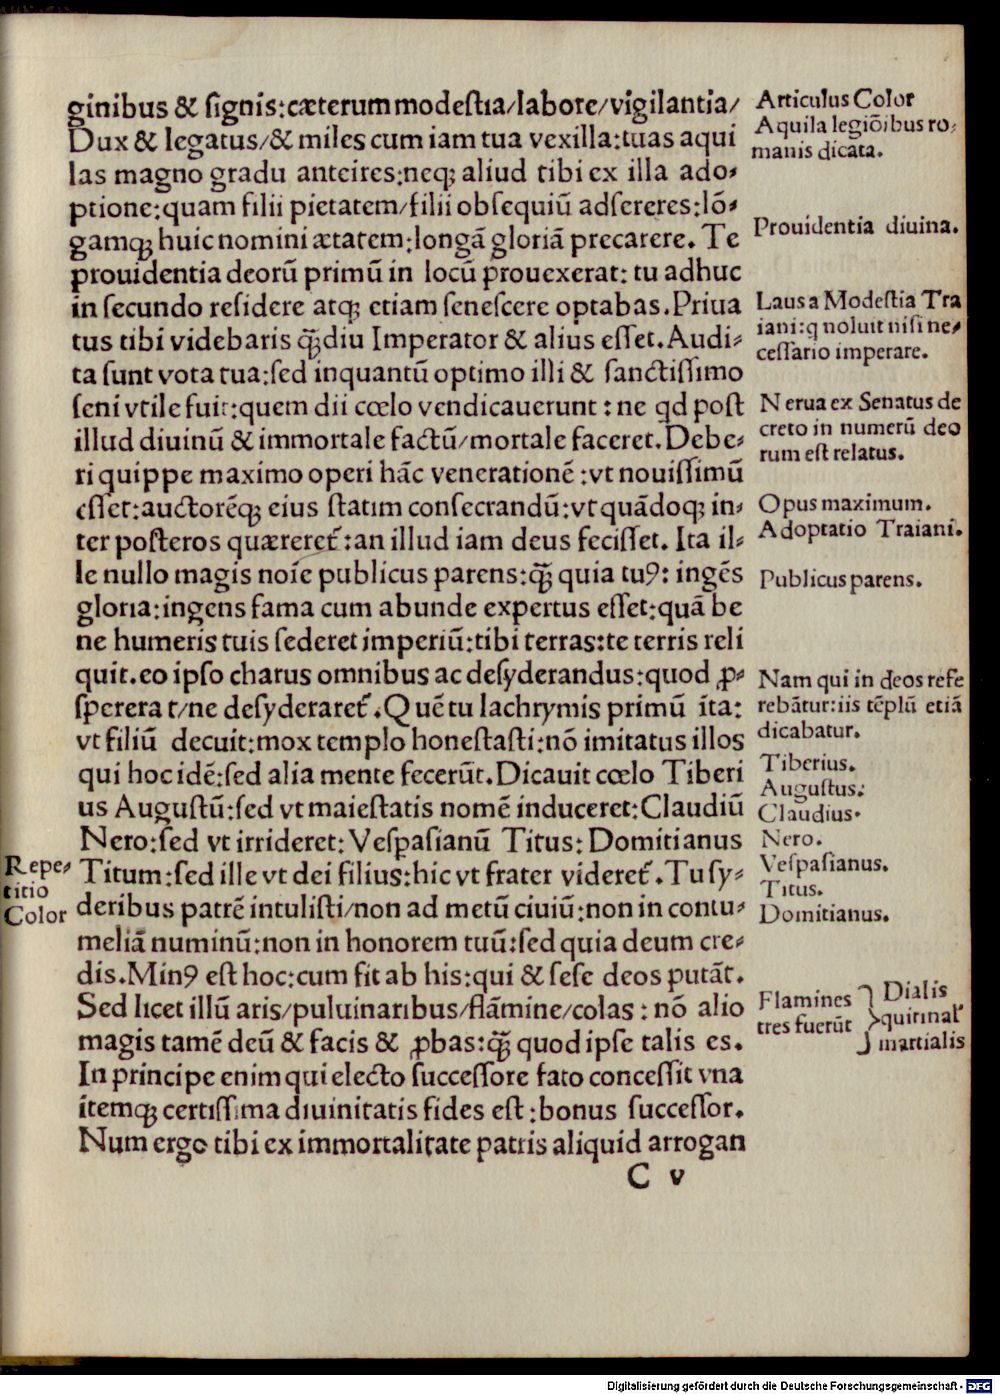 ginibus & ſignis:cæterum modeſtia/labore/vigilantia/
Dux & legatus/& miles cum iam tua vexilla:tuas aqui
las magno gradu anteires:neqꝫ aliud tibi ex illa ado⸗
ptione:quam filii pietatem/filii obſequiū adſereres:lō⸗
gamqꝫ huic nomini ætatem:longā gloriā precarere. Te
prouidentia deorū primū in locū prouexerat: tu adhuc
in ſecundo reſidere atqꝫ etiam ſeneſcere optabas.Priua
tus tibi videbaris qꝫ̄diu Imperator & alius eſſet.Audi⸗
ta ſunt vota tua:ſed inquantū optimo illi & ſanctiſſimo
ſeni vtile fuit:quem dii cœlo vendicauerunt : ne qd poſt
illud diuinū & immortale factū/mortale faceret.Debe⸗
ri quippe maximo operi hāc venerationē :vt nouiſſimū
eſſet:auctorēqꝫ eius ſtatim conſecrandū:vt quādoqꝫ in⸗
ter poſteros quæreret᷑:an illud iam deus feciſſet. Ita il⸗
le nullo magis noīe publicus parens:qꝫ̄ quia tuꝰ: ingēs
gloria:ingens fama cum abunde expertus eſſet:quā be
ne humeris tuis ſederet imperiū:tibi terras:te terris reli
quit.eo ipſo charus omnibus ac deſyderandus:quod ꝓ⸗
ſpererat/ne deſyderaret᷑.Quē tu lachrymis primū ita:
vt filiū decuit:mox templo honeſtaſti:nō imitatus illos
qui hoc idē:ſed alia mente fecerūt.Dicauit cœlo Tiberi
us Auguſtū:ſed vt maieſtatis nomē induceret:Claudiū
Nero:ſed vt irrideret: Veſpaſianū Titus: Domitianus
Titum:ſed ille vt dei filius:hic vt frater videret᷑.Tu ſy⸗
deribus patrē intuliſti/non ad metū ciuiū:non in contu⸗
meliā numinū:non in honorem tuū:ſed quia deum cre⸗
dis.Minꝰ eſt hoc:cum fit ab his:qui & ſeſe deos putāt.
Sed licet illū aris/puluinaribus/flāmine/colas : nō alio
magis tamē deū & facis & ꝓbas:qꝫ̄ quod ipſe talis es.
In principe enim qui electo ſucceſſore fato conceſſit vna
itemqꝫ certiſſima diuinitatis fides eſt :bonus ſucceſſor.
Num ergo tibi ex immortalitate patris aliquid arrogan
C v
Articulus Color
Aquila legiōibus ro⸗
manis dicata.
Prouidentia diuina.
Laus a Modeſtia Tra
iani:q noluit niſi ne⸗
ceſſario imperare.
Nerua ex Senatus de
creto in numerū deo
rum eſt relatus.
Opus maximum.
Adoptatio Traiani.
Publicus parens.
Nam qui in deos refe
rebātur:iis tēplū etiā
dicabatur.
Tiberius.
Auguſtus.
Claudius.
Nero.
Veſpaſianus.
Titus.
Domitianus.
Flamines } Dialis
tres fuerūt } quirinal᷑
} martialis
Repe⸗
titio
Color
Digitalisierung gefördert durch die Deutsche Forschungsgemeinschaft - DFG